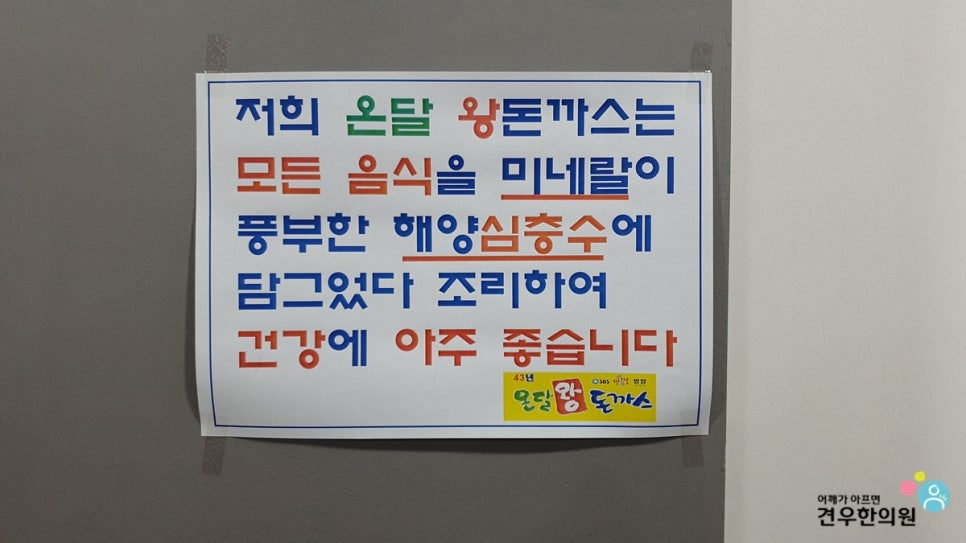 저희 온달 왕돈까스는
모든 음식을 미네랄이
풍부한 해양심층수에
담그었다 조리하여
건강에 아주 좋습니다
43년 SBS 방영
온달 왕 돈까스
어깨가 아프면
견우한의원